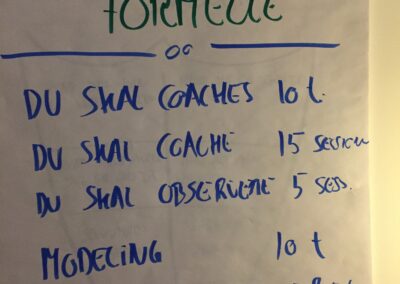 FORMELLE
DU SKAL COACHES 10 t.
DU SKAL COACHE 15 SESSION
DU SKAL OBSERVERE 5 SESS.
MODELING 10 t